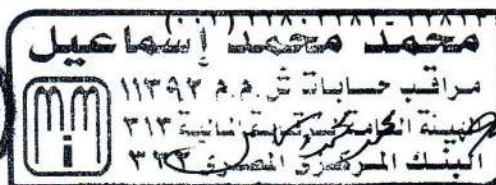 محمد محمد إسماعيل
مراقب حسابات ش.م.م ١١٣٩٢
الهيئة العامة للرقابة المالية ٣١٣
البنك المركزى المصرى